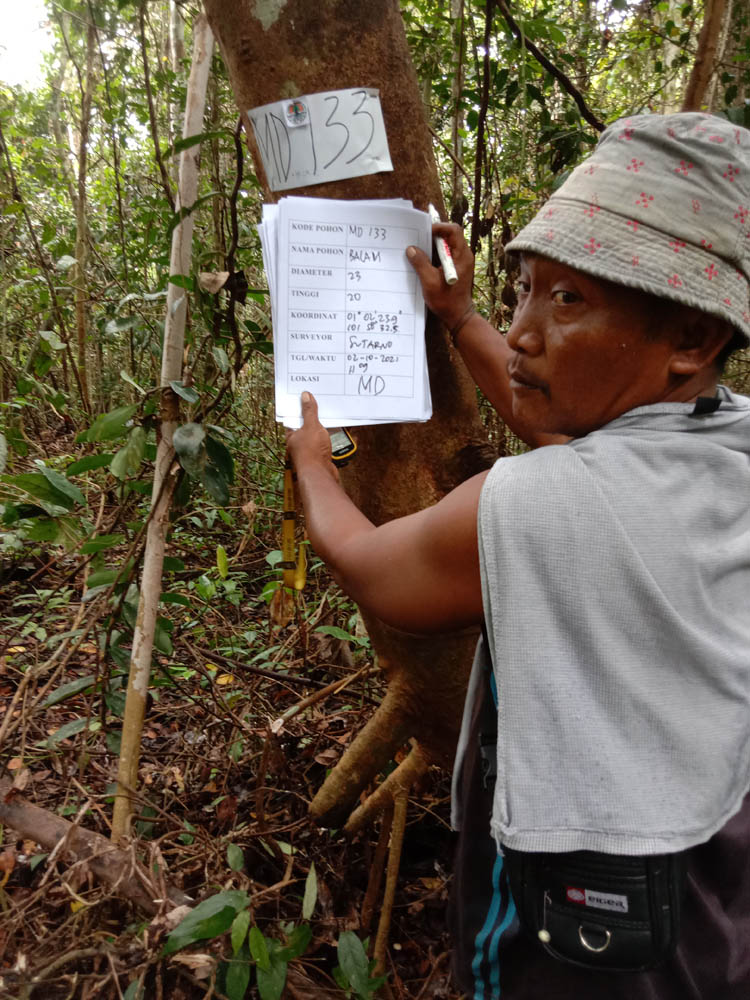 MD.133
KODE POHON MD 133
NAMA POHON BALAM
DIAMETER 23
TINGGI 20
KOORDINAT 01° 02' 23.9"
101 58 32.5
SURVEYOR SUTARNO
TGL/WAKTU 02-10-2021
LOKASI MD
EIGER